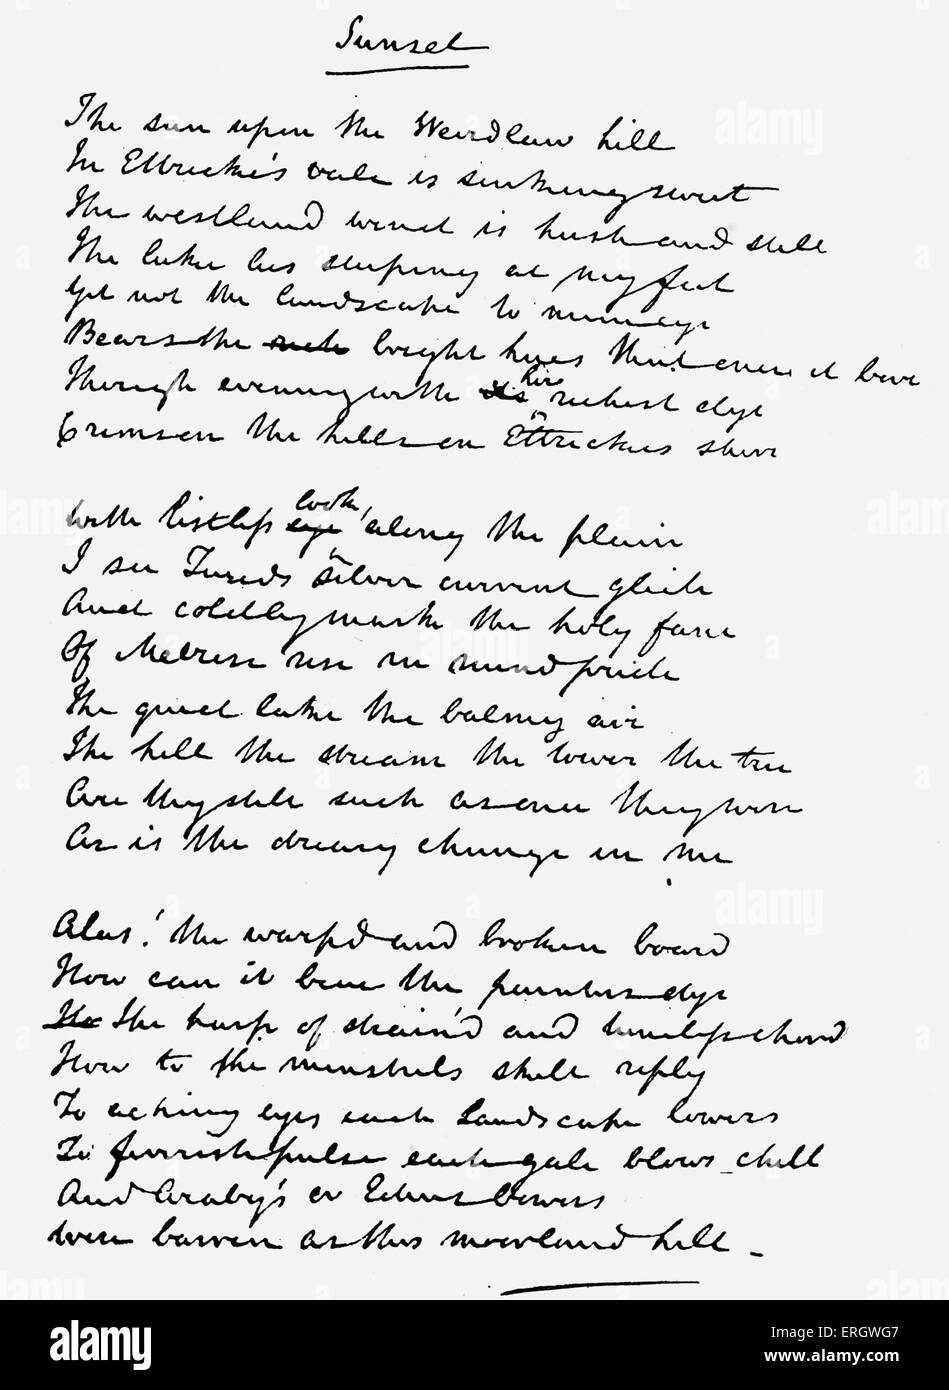 Sunset
The sun upon the Weirdlaw hill
In Ettricke's vale is sinking sweet
The westland wind is hush and still
The lake lies sleeping at my feet
Yet not the landscape to mine eye
Bears the rich bright hues that once it bore
Though evening with its her richest dye
Crimson the hills on Ettrickes shore
With listless eye look, along the plain
I see Tweeds silver current glide
And coldly mark the holy fane
Of Melrose rise in ruind pride
The quiet lake the balmy air
The hill the stream the tower the tree
Are they still such as once they were
Or is the dreary change in me
Alas! the warp'd and broken board
How can it bear the painters dye
The The harp of strain'd and tuneless chord
How to the minstrels skill reply
To aching eyes each landscape lowers
To feverish pulse each gale blows chill
And Araby's or Edens bowers
Were barren as this moorland hill -
alamy
alamy
alamy
alamy
alamy
alamy
Image ID: ERGWG7
www.alamy.com